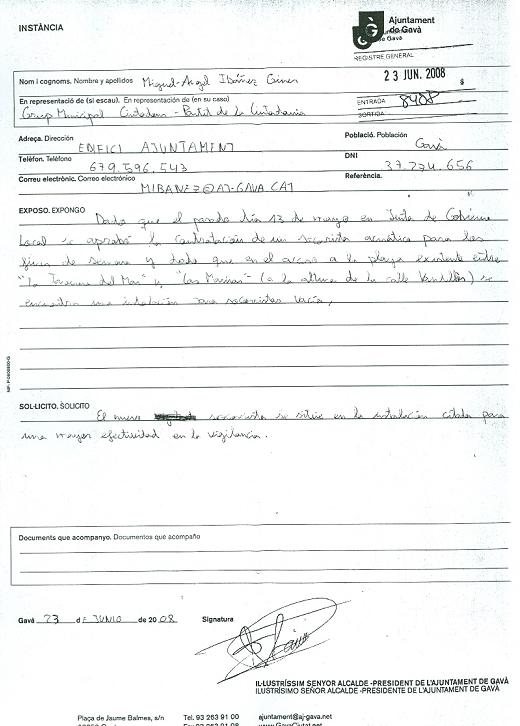 INSTÀNCIA
Ajuntament
de Gavà
REGISTRE GENERAL
23 JUN. 2008
ENTRADA 8488
SORTIDA
Nom i cognoms. Nombre y apellidos Miguel-Angel Ibáñez
En representació de (si escau). En representación de (en su caso)
Grup Municipal Ciutadans - Partit de la Ciutadania
Adreça. Dirección EDIFICI AJUNTAMENT
Població. Población Gavà
Telèfon. Teléfono 679.596.543
DNI 37.274.656
Correu electrònic. Correo electrónico MIBANEZ@AJ-GAVA.CAT
Referència.
EXPOSO. EXPONGO Dado que el pasado día 13 de mayo en Junta de Gobierno
Local se aprobó la contratación de un socorrista acuático para los
fines de semana y dado que en el acceso a la playa existente entre
"La Taverna del Mar" y "Les Marines" (a la altura de la calle) se
encuentra una instalación para socorristas vacía,
SOL·LICITO. SOLICITO El nuevo socorrista se sitúe en la instalación citada para
una mayor efectividad en la vigilancia.
Documents que acompanyo. Documentos que acompaño
Gavà 23 de JUNIO de 2008 Signatura
IL·LUSTRÍSSIM SENYOR ALCALDE -PRESIDENT DE L'AJUNTAMENT DE GAVÀ
ILUSTRÍSIMO SEÑOR ALCALDE -PRESIDENTE DE L'AJUNTAMENT DE GAVÀ
Plaça de Jaume Balmes, s/n Tel. 93 263 91 00 ajuntament@aj-gava.net
www.GavaCiutat.net